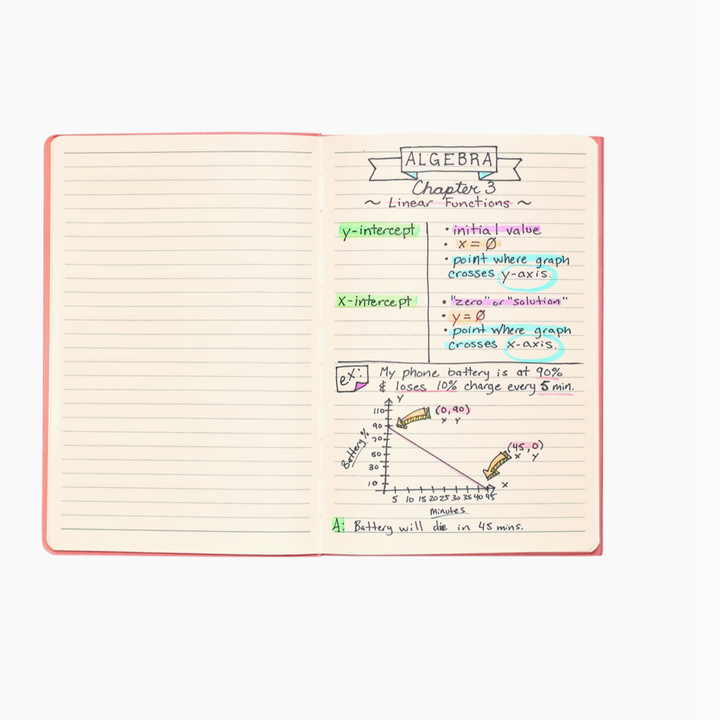 ALGEBRA
Chapter 3
~ Linear Functions ~
y-intercept
• initial value
• x = Ø
• point where graph
crosses y-axis.
x-intercept
• "zero" or "solution"
• y = Ø
• point where graph
crosses x-axis.
ex:
My phone battery is at 90%
& loses 10% charge every 5 min.
Y
110
90
70
50
30
10
Battery %
(0,90)
X Y
(45,0)
X Y
X
5 10 15 20 25 30 35 40 45
minutes
A: Battery will die in 45 mins.